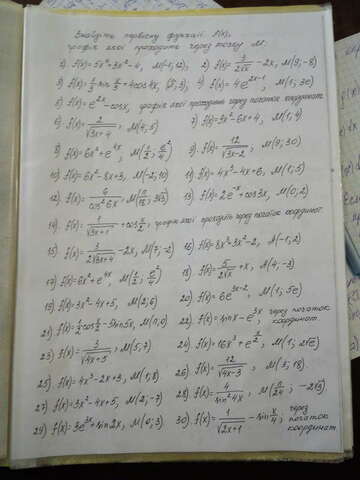 Знайдіть первісну функції f(x),
графік якої проходить через точку M.
1) f(x)=5x⁴+3x²-4, M(-1;12); 2) f(x)=3/√(2x) - 2x, M(9;-8)
3) f(x)= 1/3 sin x/3 + 4cos4x, 4) f(x)=4e^(2x-1), M(1; 3e)
5) f(x)=e^(2x)-cosx, графік якої проходить через початок координат
6) f(x)= 2/√(3x+4); M(4;5) 7) f(x)=3x²-6x+4, M(1;4)
8) f(x)=6x²+e^(4x), M(1/2; e²/4) 9) f(x)= 12/√(3x-2), M(9;30)
10) f(x)=6x²-8x+3, M(-2;10) 11) f(x)=4x³-4x+6, M(1;5)
12) f(x)= 6/cos²6x, M(π/18; 3√3) 13) f(x)=2e^(-x)+cos3x, M(0;2)
14) f(x)= 1/√(3x+1) + cos x/2; графік якої проходить через початок координат
15) f(x)= 3/(2√(3x+4)) - 2x, M(7;-2) 16) f(x)=8x³-3x²-2, A(-1;2)
17) f(x)=6x²+e^(4x), M(1/2; e²/4) 18) f(x)= 5/(2√x) + x, A(4;-3)
19) f(x)=3x²-4x+5, M(2;6) 20) f(x)=6e^(3x-2), M(1;5e)
21) f(x)= 1/2 cos x/2 - 5sin5x, M(π;0) 22) f(x)=sinx-e^(3x) через початок координат
23) f(x)= 3/√(4x+5); M(5;7) 24) f(x)=16x³+e^(x/2), M(1;2√e)
25) f(x)=4x³-2x+3, M(1;8) 26) f(x)= 12/√(4x-3), M(3;18)
27) f(x)=3x²-4x+5, M(2;-7) 28) f(x)= 4/sin²4x, M(π/24; -2√3)
29) f(x)=3e^(3x)+sin2x, M(0;3) 30) f(x)= 1/√(2x+1) - sin x/4, через початок координат